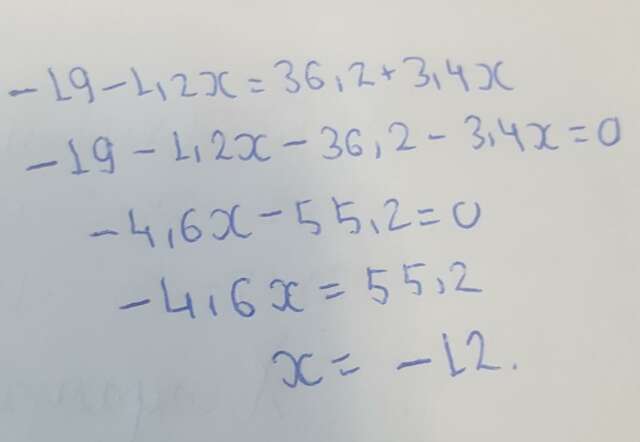 -19-1,2x=36,2+3,4x
-19-1,2x-36,2-3,4x=0
-4,6x-55,2=0
-4,6x=55,2
x=-12.